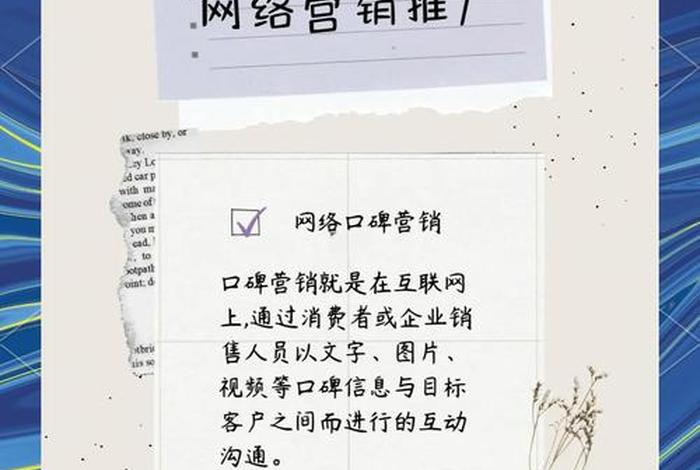 网络营销推广
close by, or
way.
ey Lo
d car p
with ma
ome of
hen a
you m
ead,
to
ootpath
oint; d
网络口碑营销
口碑营销就是在互联网
上,通过消费者或企业销
售人员以文字、图片、
视频等口碑信息与目标
客户之间而进行的互动
沟通。